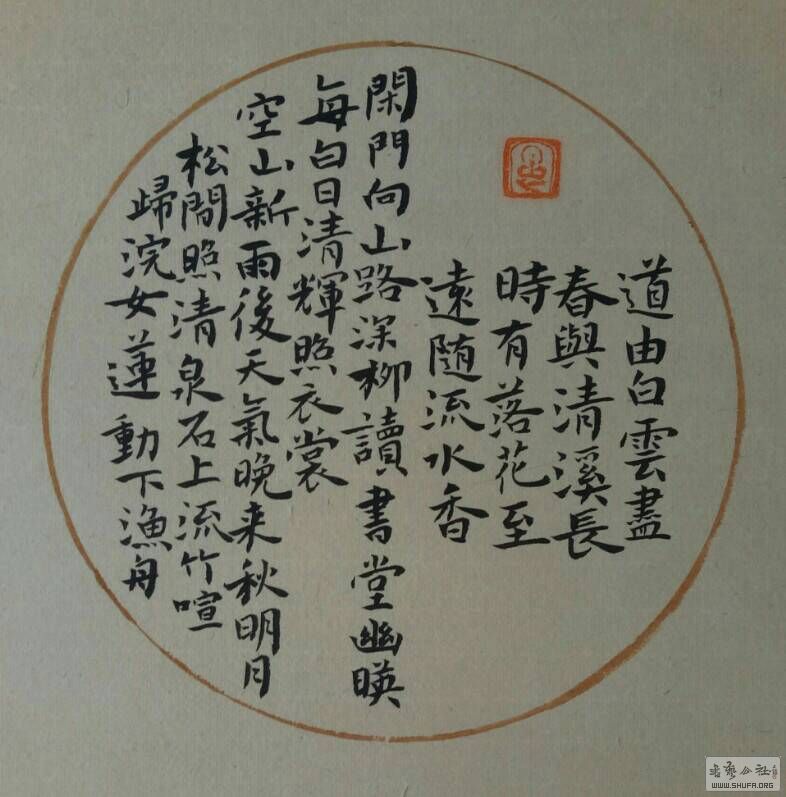 道由白雲盡
春與清溪長
時有落花至
遠随流水香
閑門向山路深柳讀書堂幽暎
每白日清輝照衣裳
空山新雨後天氣晚来秋明月
松間照清泉石上流竹喧
歸浣女蓮動下漁舟
WWW.SHUFA.ORG